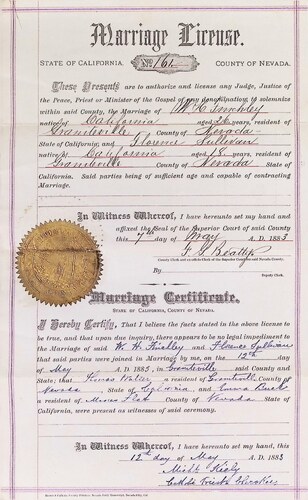 Marriage License.
STATE OF CALIFORNIA. No. 161 COUNTY OF NEVADA.
These Presents are to authorize and license any Judge, Justice of
the Peace, Priest or Minister of the Gospel of any denomination to solemnize
within said County, the Marriage of W. H.
native of California aged 26 years, resident of
Graniteville County of Nevada
State of California, and Florence Sullivan
native of California aged 18 years, resident of
Graniteville County of Nevada State of
California. Said parties being of sufficient age and capable of contracting
Marriage.
In Witness Whereof, I have hereunto set my hand and
affixed the Seal of the Superior Court of said County
this 7th day of May A. D. 1883
County Clerk and ex-officio Clerk of the Superior Court in and for said Nevada County.
By
Deputy Clerk.
Marriage Certificate.
STATE OF CALIFORNIA, COUNTY OF NEVADA.
I Hereby Certify, That I believe the facts stated in the above license
to be true, and that upon due inquiry, there appears to be no legal impediment to
the marriage of said W. H. and Florence Sullivan
that said parties were joined in Marriage by me, on the 12th day
of May A. D. 1883, in Graniteville said County and
State; that Thomas a resident of Graniteville County of
Nevada, State of California and Emma
a resident of Moores Flat County of Nevada State of
California, were present as witnesses of said ceremony.
In Witness Whereof, I have hereunto set my hand, this
12th day of May A. D. 1883